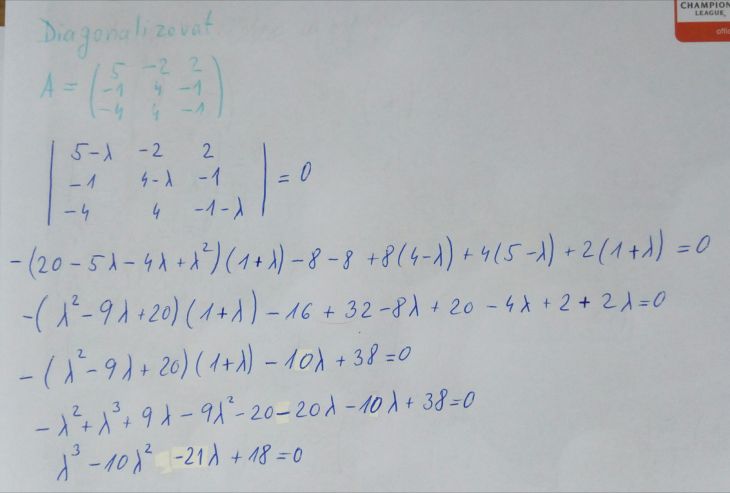 CHAMPION
LEAGUE
Diagonalizovat
A = ( 5 -2 2
-1 4 -1
-4 4 -1 )
| 5-λ -2 2
-1 4-λ -1
-4 4 -1-λ | = 0
-(20 - 5λ - 4λ + λ²)(1+λ) - 8 - 8 + 8(4-λ) + 4(5-λ) + 2(1+λ) = 0
-(λ² - 9λ + 20)(1+λ) - 16 + 32 - 8λ + 20 - 4λ + 2 + 2λ = 0
-(λ² - 9λ + 20)(1+λ) - 10λ + 38 = 0
-λ² + λ³ + 9λ - 9λ² - 20 - 20λ - 10λ + 38 = 0
λ³ - 10λ² - 21λ + 18 = 0